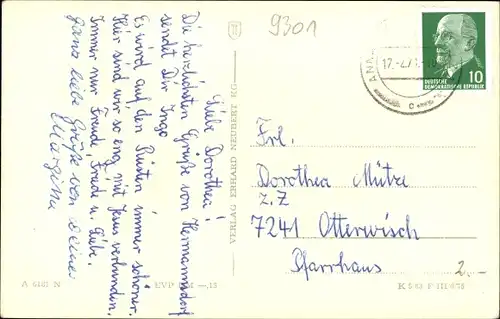 9301
Liebe Dorothea!
Die herzlichsten Grüße von Hermannsdorf
sendet Dir Ingo
Es wird auf den Rüsten immer schöner.
Hier sind wir so eng mit Jesus verbunden.
Immer nur Freude, Friede u. Liebe.
Ganz liebe Grüße von Deiner
VERLAG ERHARD NEUBERT KG
17.-2.71.-18
DEUTSCHE
DEMOKRATISCHE REPUBLIK
10
Frl.
Dorothea Mütze
z.Z
7241 Otterwisch
Pfarrhaus
2,-
A N
EVP —,15
K